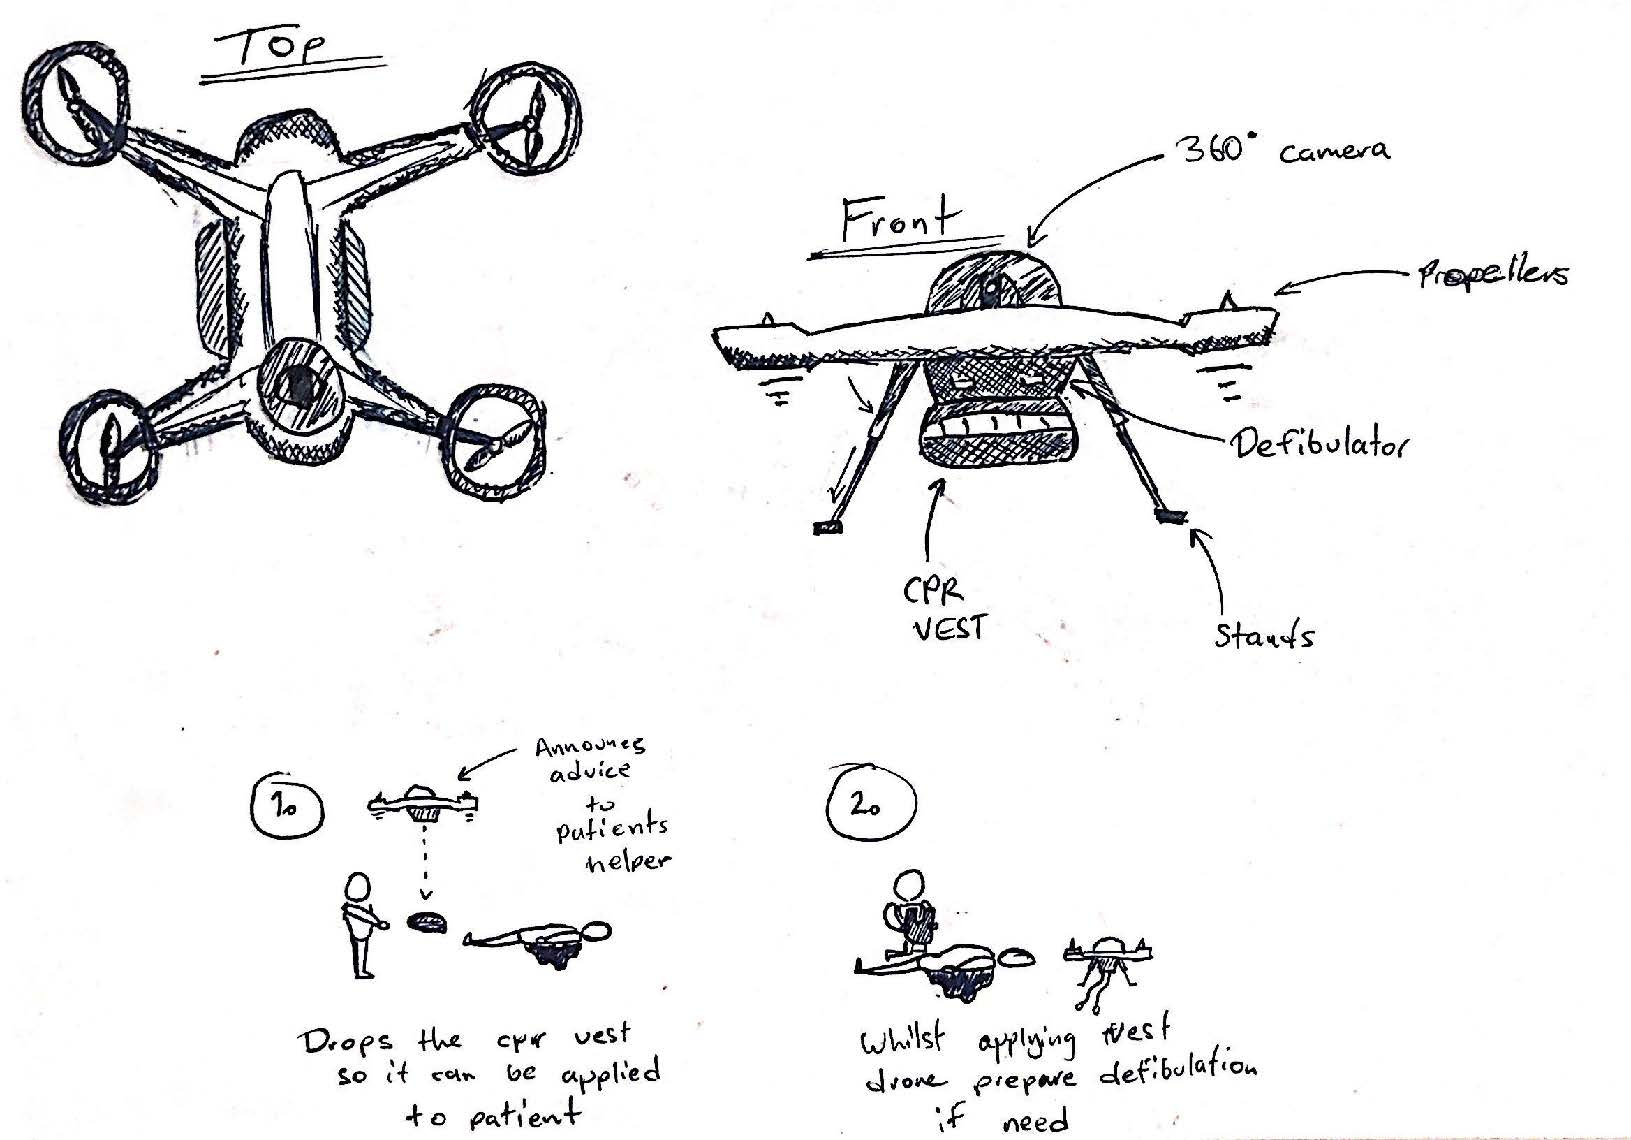 Top
360° camera
Front
Propellers
Defibulator
CPR
VEST
Stands
1.
Announes
advice
to
patients
helper
2.
Drops the cpr vest
so it can be applied
to patient
Whilst applying vest
drone prepare defibulation
if need